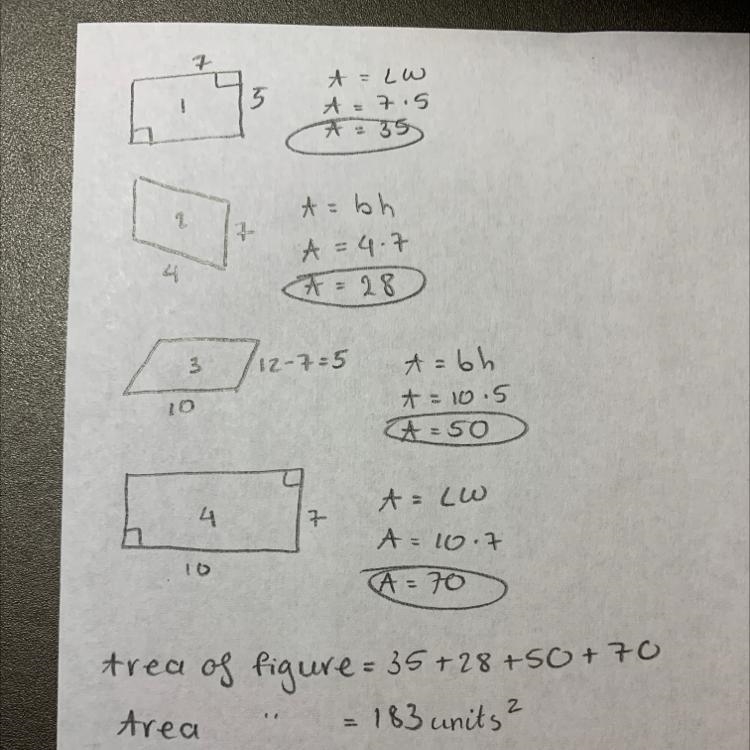 7
1
5
A = LW
A = 7·5
A = 35
2
7
4
A = bh
A = 4·7
A = 28
3
12-7=5
10
A = bh
A = 10·5
A = 50
4
7
10
A = LW
A = 10·7
A = 70
Area of figure = 35+28+50+70
Area " = 183 units²